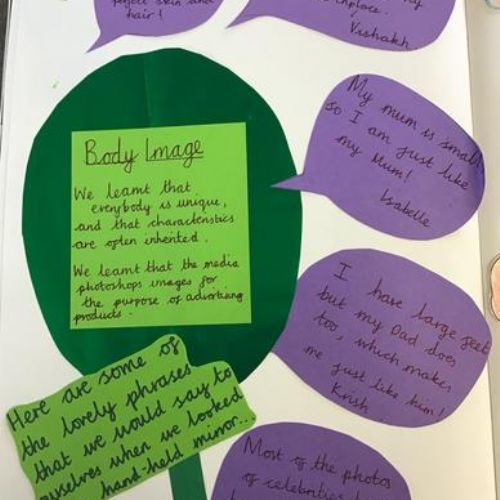 perfect skin and
hair!
my
Vishakh.
My mum is small
so I am just like
my Mum!
Isabelle
Body Image
We learnt that
everybody is unique,
and that characteristics
are often inherited.
We learnt that the media
photoshops images for
the purpose of advertising
products.
I have large feet
but my Dad does
too, which makes
me just like him!
Krish
Here are some of
the lovely phrases
that we would say to
ourselves when we looked
hand-held mirror...
Most of the photos
of celebrities